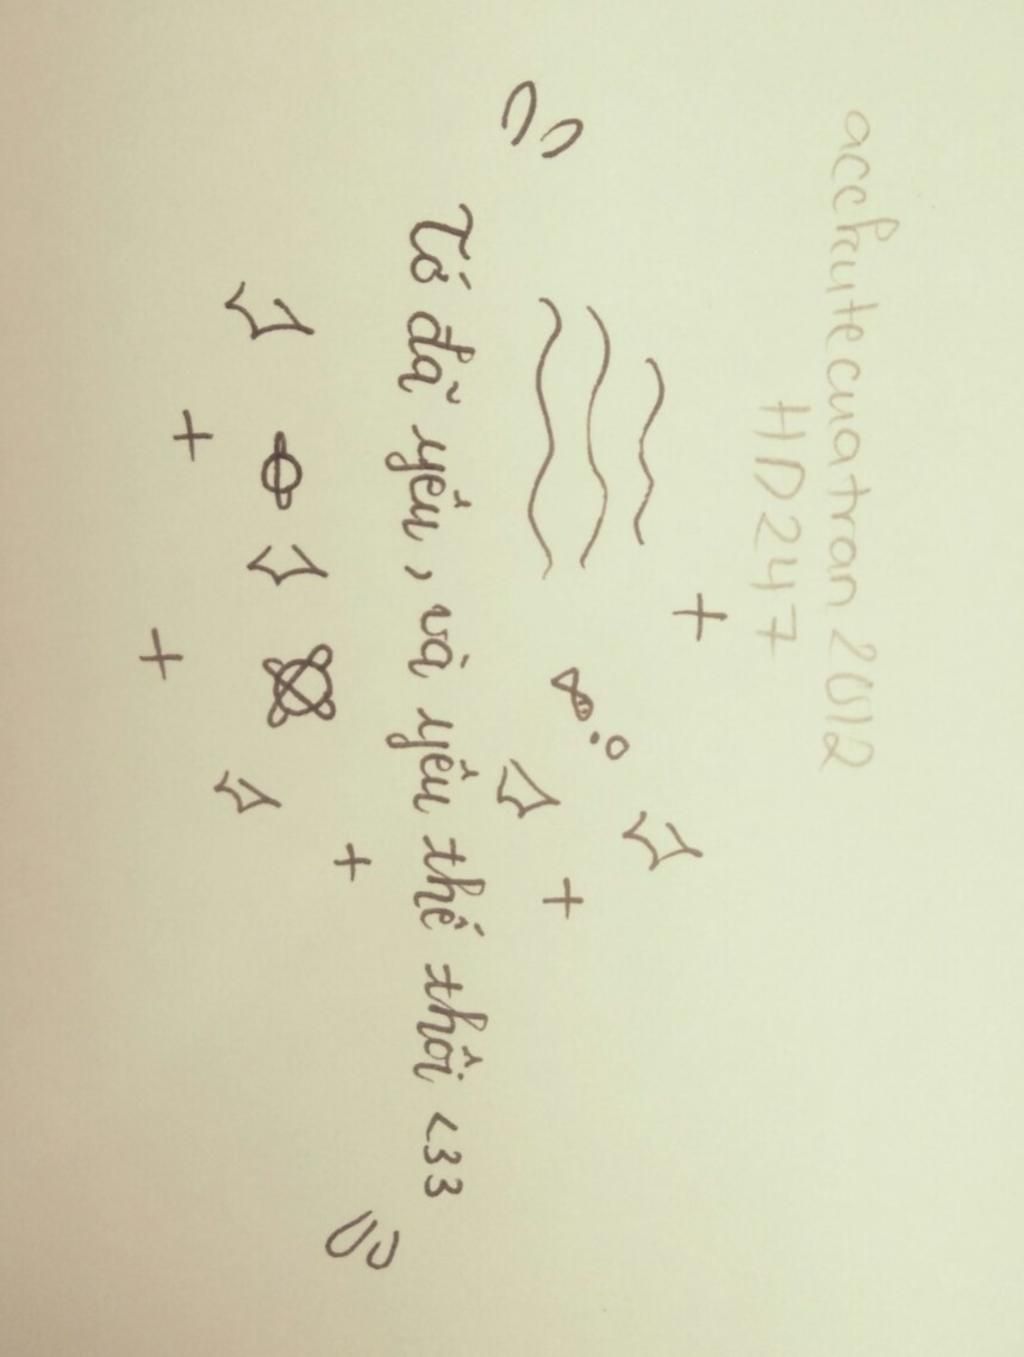 acckutecuatran2012
HD247
Tớ đã yêu, và yêu thế thôi <33